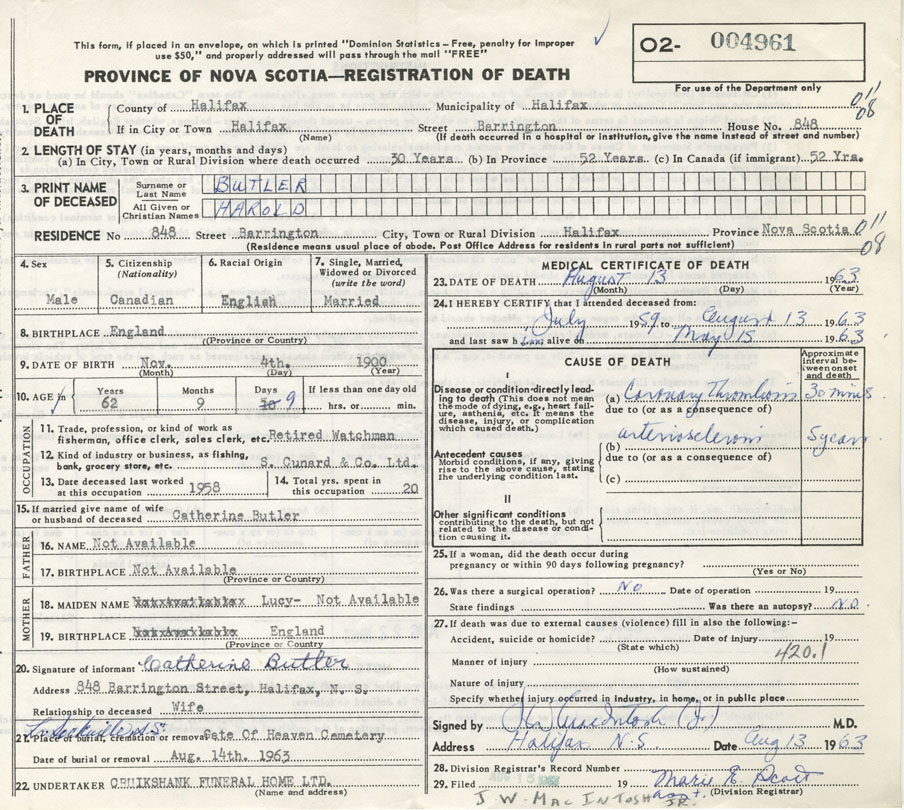 This form, if placed in an envelope, on which is printed "Dominion Statistics – Free, penalty for improper
use $50," and properly addressed will pass through the mail "FREE"
O2- 004961
For use of the Department only
PROVINCE OF NOVA SCOTIA—REGISTRATION OF DEATH
1. PLACE OF DEATH
County of Halifax Municipality of Halifax 0'11
If in City or Town Halifax Street Barrington House No. 848 08
(Name) (If death occurred in a hospital or institution, give the name instead of street and number)
2. LENGTH OF STAY (in years, months and days)
(a) In City, Town or Rural Division where death occurred 30 Years (b) In Province 52 Years. (c) In Canada (if immigrant) 52 Yrs.
3. PRINT NAME OF DECEASED
Surname or Last Name BUTLER
All Given or Christian Names HAROLD
RESIDENCE No 848 Street Barrington City, Town or Rural Division Halifax Province Nova Scotia 0'11
(Residence means usual place of abode. Post Office Address for residents in rural parts not sufficient) 08
4. Sex
Male
5. Citizenship (Nationality)
Canadian
6. Racial Origin
English
7. Single, Married, Widowed or Divorced (write the word)
Married
8. BIRTHPLACE England
(Province or Country)
9. DATE OF BIRTH Nov. 4th. 1900
(Month) (Day) (Year)
10. AGE in Years Months Days If less than one day old
62 9 10 9 hrs. or min.
OCCUPATION
11. Trade, profession, or kind of work as
fisherman, office clerk, sales clerk, etc. Retired Watchman
12. Kind of industry or business, as fishing,
bank, grocery store, etc. S. Cunard & Co. Ltd.
13. Date deceased last worked at this occupation 1958
14. Total yrs. spent in this occupation 20
15. If married give name of wife
or husband of deceased Catherine Butler
FATHER
16. NAME Not Available
17. BIRTHPLACE Not Available
(Province or Country)
MOTHER
18. MAIDEN NAME Lucy- Not Available
19. BIRTHPLACE England
(Province or Country)
20. Signature of informant Catherine Butler
Address 848 Barrington Street, Halifax, N. S.
Relationship to deceased Wife
Sackville N.S.
21. Place of burial, cremation or removal Gate Of Heaven Cemetery
Date of burial or removal Aug. 14th. 1963
22. UNDERTAKER CRUIKSHANK FUNERAL HOME LTD.
(Name and address)
MEDICAL CERTIFICATE OF DEATH
23. DATE OF DEATH August 13 1963
(Month) (Day) (Year)
24. I HEREBY CERTIFY that I attended deceased from:
July 1959 to August 13 1963
and last saw him alive on May 15 1963
CAUSE OF DEATH
Approximate interval between onset and death
I
Disease or condition directly leading to death (This does not mean the mode of dying, e.g., heart failure, asthenia, etc. It means the disease, injury, or complication which caused death.)
(a) Coronary Thrombosis 30 mins
due to (or as a consequence of)
Antecedent causes
Morbid conditions, if any, giving rise to the above cause, stating the underlying condition last.
(b) arteriosclerosis 5 years
due to (or as a consequence of)
(c)
II
Other significant conditions
contributing to the death, but not related to the disease or condition causing it.
25. If a woman, did the death occur during
pregnancy or within 90 days following pregnancy?
(Yes or No)
26. Was there a surgical operation? NO Date of operation 19
State findings Was there an autopsy? NO.
27. If death was due to external causes (violence) fill in also the following:–
Accident, suicide or homicide? Date of injury 19
(State which) 420.1
Manner of injury
(How sustained)
Nature of injury
Specify whether injury occurred in industry, in home, or in public place
Signed by J.W. MacIntosh (Jr.) M.D.
Address Halifax N.S. Date Aug 13 1963
28. Division Registrar's Record Number
29. Filed 19 Marie E. Scott
(Division Registrar)
J. W. MACINTOSH JR.